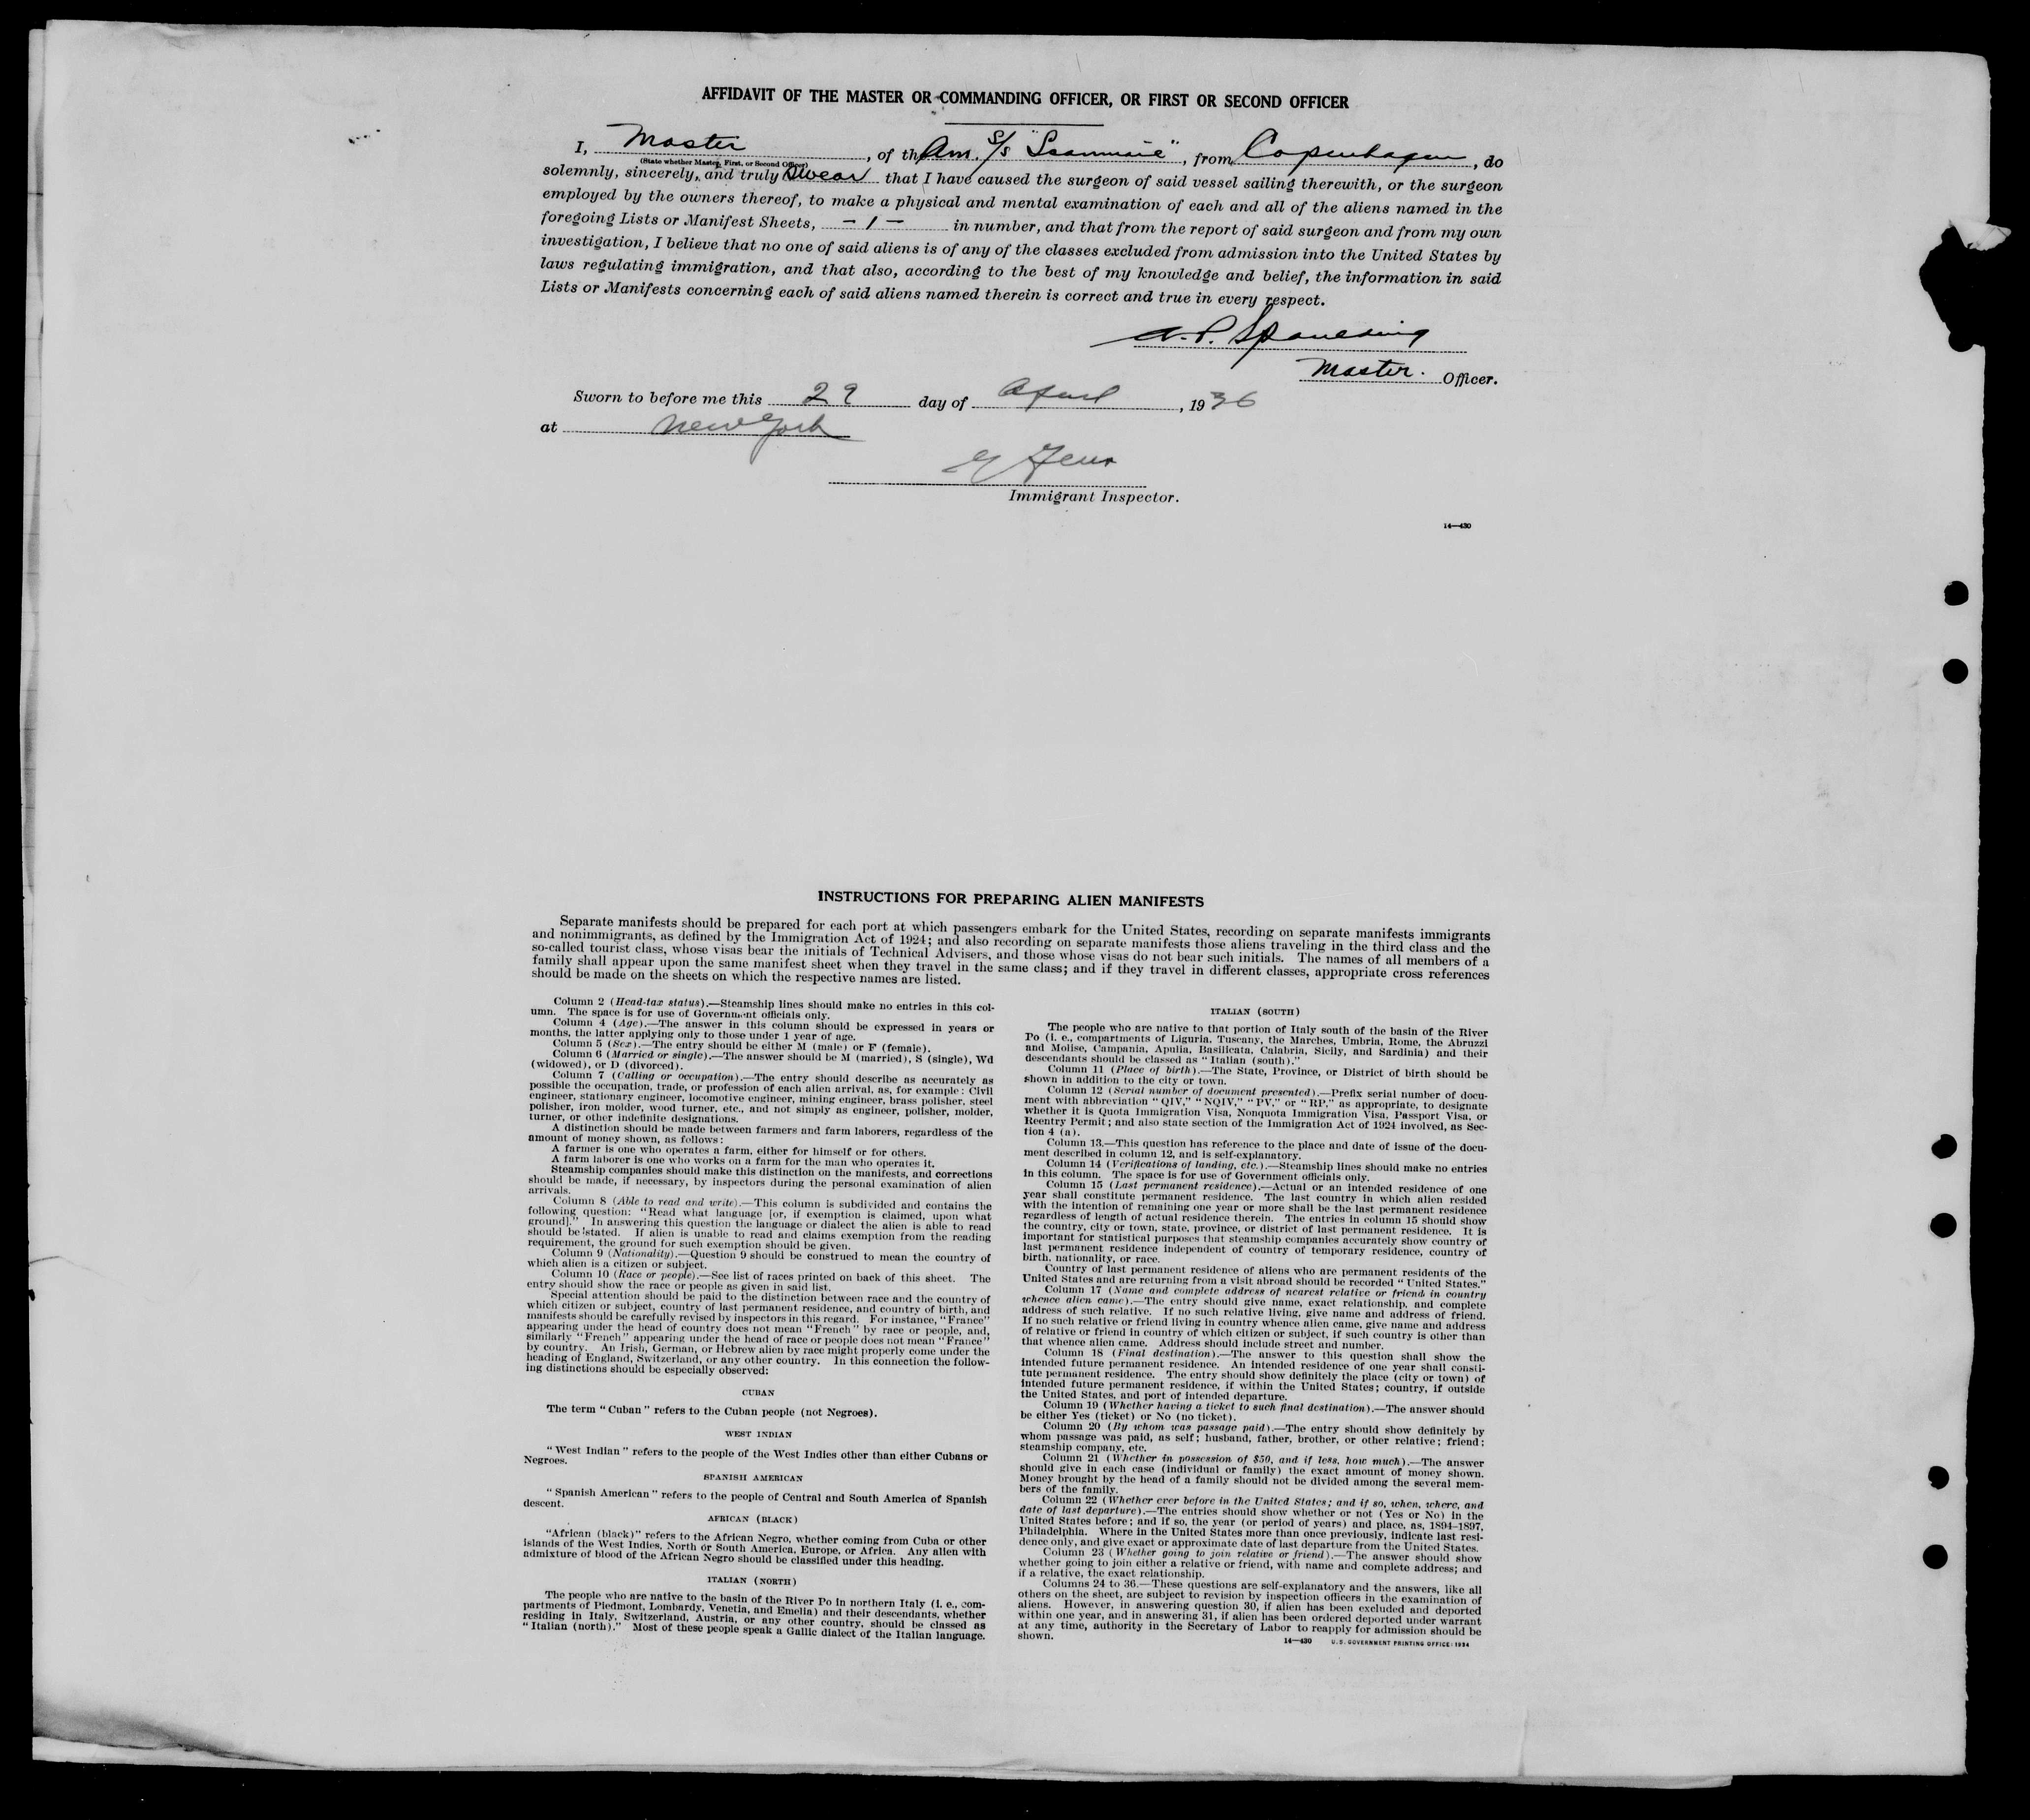 AFFIDAVIT OF THE MASTER OR COMMANDING OFFICER, OR FIRST OR SECOND OFFICER
I, Master, of the Am. S/S "Scanmail", from Copenhagen, do
(State whether Master, First, or Second Officer)
solemnly, sincerely, and truly swear that I have caused the surgeon of said vessel sailing therewith, or the surgeon
employed by the owners thereof, to make a physical and mental examination of each and all of the aliens named in the
foregoing Lists or Manifest Sheets, - 1 - in number, and that from the report of said surgeon and from my own
investigation, I believe that no one of said aliens is of any of the classes excluded from admission into the United States by
laws regulating immigration, and that also, according to the best of my knowledge and belief, the information in said
Lists or Manifests concerning each of said aliens named therein is correct and true in every respect.
Spaulding
Master. Officer.
Sworn to before me this 29 day of April, 1936
at New York
Immigrant Inspector.
14—430
INSTRUCTIONS FOR PREPARING ALIEN MANIFESTS
Separate manifests should be prepared for each port at which passengers embark for the United States, recording on separate manifests immigrants
and nonimmigrants, as defined by the Immigration Act of 1924; and also recording on separate manifests those aliens traveling in the third class and the
so-called tourist class, whose visas bear the initials of Technical Advisers, and those whose visas do not bear such initials. The names of all members of a
family shall appear upon the same manifest sheet when they travel in the same class; and if they travel in different classes, appropriate cross references
should be made on the sheets on which the respective names are listed.
Column 2 (Head-tax status).—Steamship lines should make no entries in this col-
umn. The space is for use of Government officials only.
Column 4 (Age).—The answer in this column should be expressed in years or
months, the latter applying only to those under 1 year of age.
Column 5 (Sex).—The entry should be either M (male) or F (female).
Column 6 (Married or single).—The answer should be M (married), S (single), Wd
(widowed), or D (divorced).
Column 7 (Calling or occupation).—The entry should describe as accurately as
possible the occupation, trade, or profession of each alien arrival, as, for example: Civil
engineer, stationary engineer, locomotive engineer, mining engineer, brass polisher, steel
polisher, iron molder, wood turner, etc., and not simply as engineer, polisher, molder,
turner, or other indefinite designations.
A distinction should be made between farmers and farm laborers, regardless of the
amount of money shown, as follows:
A farmer is one who operates a farm, either for himself or for others.
A farm laborer is one who works on a farm for the man who operates it.
Steamship companies should make this distinction on the manifests, and corrections
should be made, if necessary, by inspectors during the personal examination of alien
arrivals.
Column 8 (Able to read and write).—This column is subdivided and contains the
following question: "Read what language [or, if exemption is claimed, upon what
ground]." In answering this question the language or dialect the alien is able to read
should be stated. If alien is unable to read and claims exemption from the reading
requirement, the ground for such exemption should be given.
Column 9 (Nationality).—Question 9 should be construed to mean the country of
which alien is a citizen or subject.
Column 10 (Race or people).—See list of races printed on back of this sheet. The
entry should show the race or people as given in said list.
Special attention should be paid to the distinction between race and the country of
which citizen or subject, country of last permanent residence, and country of birth, and
manifests should be carefully revised by inspectors in this regard. For instance, "France"
appearing under the head of country does not mean "French" by race or people, and,
similarly "French" appearing under the head of race or people does not mean "France"
by country. An Irish, German, or Hebrew alien by race might properly come under the
heading of England, Switzerland, or any other country. In this connection the follow-
ing distinctions should be especially observed:
CUBAN
The term "Cuban" refers to the Cuban people (not Negroes).
WEST INDIAN
"West Indian" refers to the people of the West Indies other than either Cubans or
Negroes.
SPANISH AMERICAN
"Spanish American" refers to the people of Central and South America of Spanish
descent.
AFRICAN (BLACK)
"African (black)" refers to the African Negro, whether coming from Cuba or other
islands of the West Indies, North or South America, Europe, or Africa. Any alien with
admixture of blood of the African Negro should be classified under this heading.
ITALIAN (NORTH)
The people who are native to the basin of the River Po in northern Italy (i. e., com-
partments of Piedmont, Lombardy, Venetia, and Emelia) and their descendants, whether
residing in Italy, Switzerland, Austria, or any other country, should be classed as
"Italian (north)." Most of these people speak a Gallic dialect of the Italian language.
ITALIAN (SOUTH)
The people who are native to that portion of Italy south of the basin of the River
Po (i. e., compartments of Liguria, Tuscany, the Marches, Umbria, Rome, the Abruzzi
and Molise, Campania, Apulia, Basilicata, Calabria, Sicily, and Sardinia) and their
descendants should be classed as "Italian (south)."
Column 11 (Place of birth).—The State, Province, or District of birth should be
shown in addition to the city or town.
Column 12 (Serial number of document presented).—Prefix serial number of docu-
ment with abbreviation "QIV," "NQIV," "PV," or "RP," as appropriate, to designate
whether it is Quota Immigration Visa, Nonquota Immigration Visa, Passport Visa, or
Reentry Permit; and also state section of the Immigration Act of 1924 involved, as Sec-
tion 4 (a).
Column 13.—This question has reference to the place and date of issue of the docu-
ment described in column 12, and is self-explanatory.
Column 14 (Verifications of landing, etc.).—Steamship lines should make no entries
in this column. The space is for use of Government officials only.
Column 15 (Last permanent residence).—Actual or an intended residence of one
year shall constitute permanent residence. The last country in which alien resided
with the intention of remaining one year or more shall be the last permanent residence
regardless of length of actual residence therein. The entries in column 15 should show
the country, city or town, state, province, or district of last permanent residence. It is
important for statistical purposes that steamship companies accurately show country of
last permanent residence independent of country of temporary residence, country of
birth, nationality, or race.
Country of last permanent residence of aliens who are permanent residents of the
United States and are returning from a visit abroad should be recorded "United States."
Column 17 (Name and complete address of nearest relative or friend in country
whence alien came).—The entry should give name, exact relationship, and complete
address of such relative. If no such relative living, give name and address of friend.
If no such relative or friend living in country whence alien came, give name and address
of relative or friend in country of which citizen or subject, if such country is other than
that whence alien came. Address should include street and number.
Column 18 (Final destination).—The answer to this question shall show the
intended future permanent residence. An intended residence of one year shall consti-
tute permanent residence. The entry should show definitely the place (city or town) of
intended future permanent residence, if within the United States; country, if outside
the United States, and port of intended departure.
Column 19 (Whether having a ticket to such final destination).—The answer should
be either Yes (ticket) or No (no ticket).
Column 20 (By whom was passage paid).—The entry should show definitely by
whom passage was paid, as self; husband, father, brother, or other relative; friend;
steamship company, etc.
Column 21 (Whether in possession of $50, and if less, how much).—The answer
should give in each case (individual or family) the exact amount of money shown.
Money brought by the head of a family should not be divided among the several mem-
bers of the family.
Column 22 (Whether ever before in the United States; and if so, when, where, and
date of last departure).—The entries should show whether or not (Yes or No) in the
United States before; and if so, the year (or period of years) and place, as, 1894–1897,
Philadelphia. Where in the United States more than once previously, indicate last resi-
dence only, and give exact or approximate date of last departure from the United States.
Column 23 (Whether going to join relative or friend).—The answer should show
whether going to join either a relative or friend, with name and complete address; and
if a relative, the exact relationship.
Columns 24 to 36.—These questions are self-explanatory and the answers, like all
others on the sheet, are subject to revision by inspection officers in the examination of
aliens. However, in answering question 30, if alien has been excluded and deported
within one year, and in answering 31, if alien has been ordered deported under warrant
at any time, authority in the Secretary of Labor to reapply for admission should be
shown.
14—430 U.S. GOVERNMENT PRINTING OFFICE: 1934